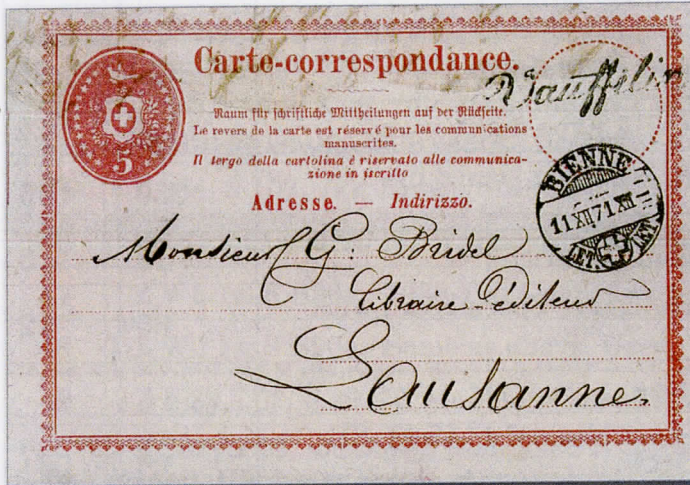 Carte-correspondance.
Vauffelin
Raum für schriftliche Mittheilungen auf der Rückseite.
Le revers de la carte est réservé pour les communications
manuscrites.
Il tergo della cartolina è riservato alle communica-
zione in iscritto
5
Adresse. — Indirizzo.
BIENNE
11 XII 71 XII
LET. LET.
Monsieur G. Bridel
Libraire-éditeur
Lausanne.